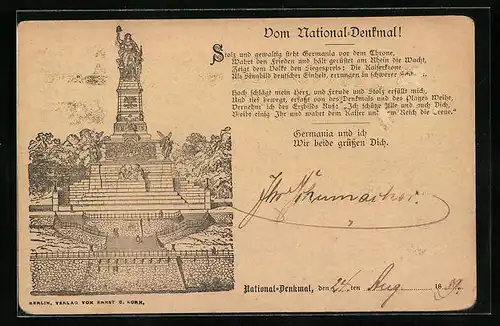 Vom National-Denkmal!
Stolz und gewaltig steht Germania vor dem Throne,
Wahrt den Frieden und hält gerüstet am Rhein die Wacht,
Zeigt dem Volke den Siegespreis: Die Kaiserkrone
Als Sinnbild deutscher Einheit, errungen in schwerer
Hoch schlägt mein Herz, und Freude und Stolz erfüllt mich,
Und tief bewegt, erfaßt von des Denkmals und des Platzes Weihe,
Vernehm' ich des Erzbilds Ruf: „Ich schütz' Alle und auch Dich,
Bleibt einig Ihr und wahrt dem Kaiser und dem Reich die Treue."
Germania und ich
Wir beide grüßen Dich.
Schumacher.
National-Denkmal, den 24ten Aug 18
BERLIN, VERLAG VON ERNST C. KORN.